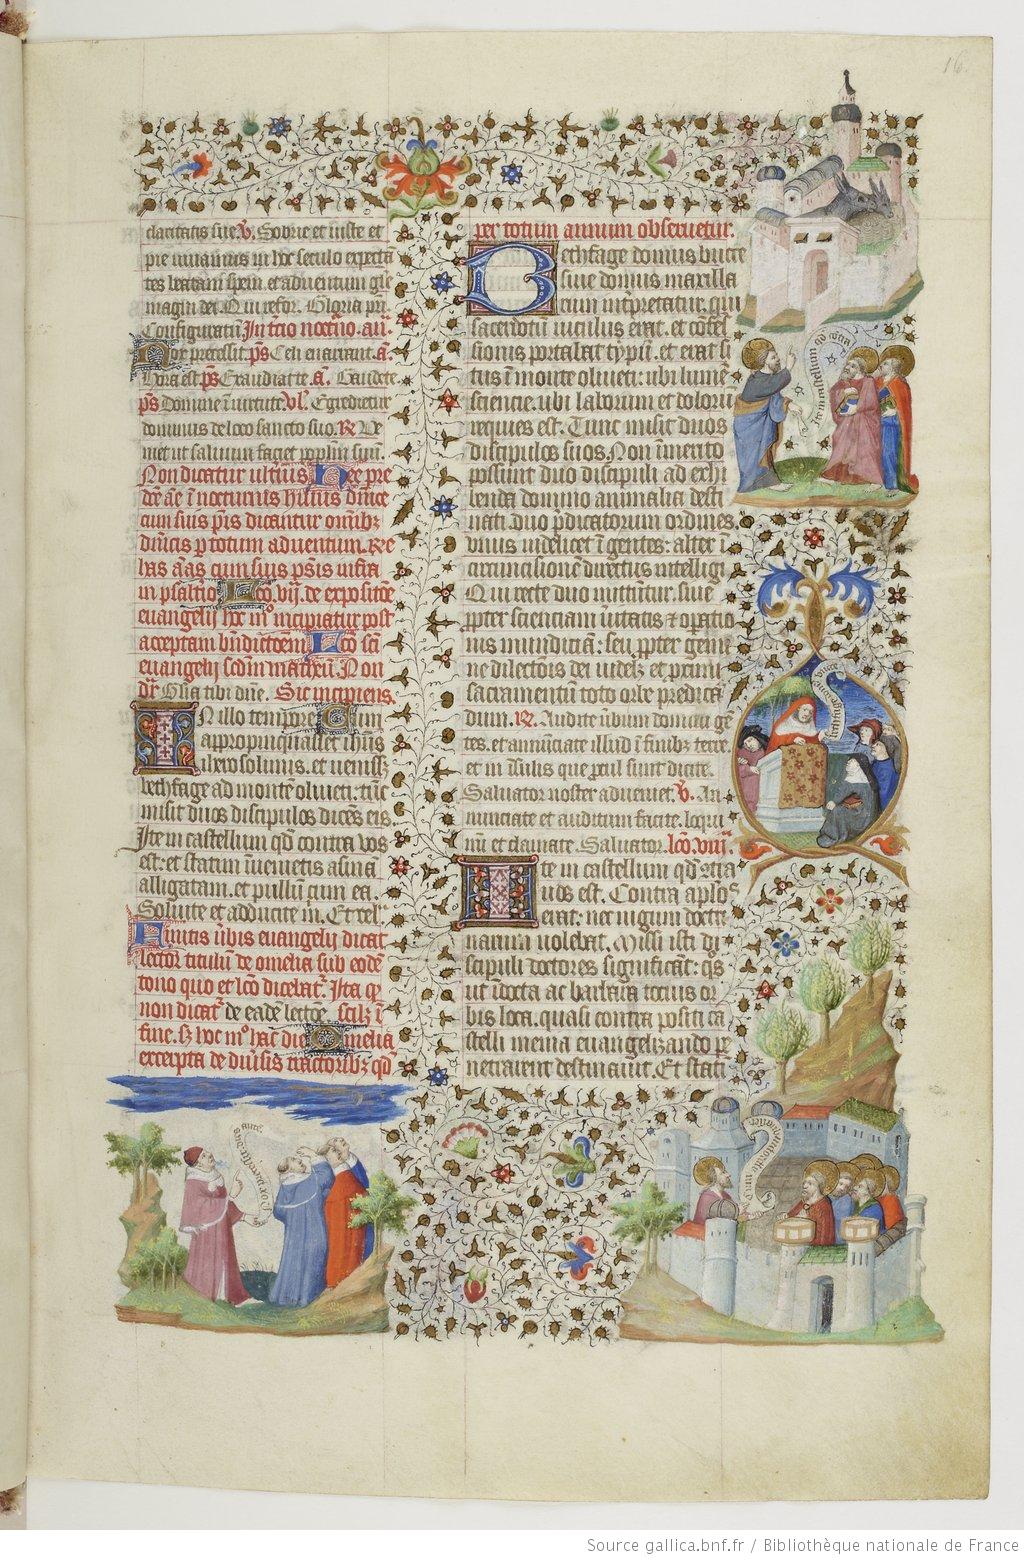 16.
claritatis sue. V. Sobrie et iuste et
pie uiuamus in hoc seculo expecta
tes beatam spem et aduentum glē
magni dei. Gloria pri
Configuratū In trio noctno. an.
Nox precessit. ps Celi enarrant. A
Hora est ps Exaudiat te A. Gaudete
ps Domine ī uirtute Vl. Egredietur
dominus de loco sancto suo. R Ve
niet ut saluum faciet populū suū.
Non dicatur ulterius Hee pre
cum suis pṡis dicantur
per totum aduentum. Re
in psaltio Lco. vij. de expositōe
euangelij hoc mº incipiatur post
acceptam bndictōem Lco sci
euangelij scdm matheū. Non
dr Glia tibi dne. Sic incipiens
In illo tempore Cum
appropinquasset ihus
iherosolimis. et uenissz
bethfage ad monte oliueti: tūc
misit duos discipulos dicēs eis
Ite in castellum qd contra vos
est: et statim īuenietis asinā
alligatam. et pullū cum ea.
Soluite et adducite m. Et rel.
Finitis ūbis euangelij dicat
lector titulū de omelia sub eodē
tono quo et lco dicebat. Ita q
non dicat de eadē lectōe. scilz ī
fine. sz hoc mº hac die Omelia
excerpta de diūsis tractoribz qd
per totum annum obseruetur.
Bethfage domus bucce
siue domus maxilla
rum intpretatur. qui
sacerdotū uiculus erat. et cōfes
sionis portabat typū. et erat si
tus ī monte oliueti: ubi lumē
scientie. ubi laborum et dolorū
requies est. Tunc misit duos
discipulos suos. Non īmerito
possunt duo discipuli ad exhi
benda domino animalia desti
nati. duo pdicatorum ordines
vnus uidelicet ī gentes: alter ī
circuncisionē directus intelligi
Qui recte duo mittuntur. siue
ppter scientiam uitatis et opatio
nis mundiciā: seu ppter gemi
ne dilectiōis dei uidelz et proximi
sacramentū toto orbe predicā
dum. R. Audite ūbum domini gē
tes. et annūciate illud ī finibz terre.
et in īsulis que pcul sunt dicite.
Saluator noster adueniet. V. An
nunciate et auditum facite. loqui
mī et clamate. Saluator. lco. viij.
Ite in castellum qd contra
uos est. Contra aplos
erat: nec iugum doctri
narum uolebat. Missi isti di
scipuli doctores significāt: qs
ut īdocta ac barbara totius or
bis loca. quasi contra positi ca
stelli menia euangelizando pe
netrarent destinauit. Et stati
ite in castellum
Source gallica.bnf.fr / Bibliothèque nationale de France